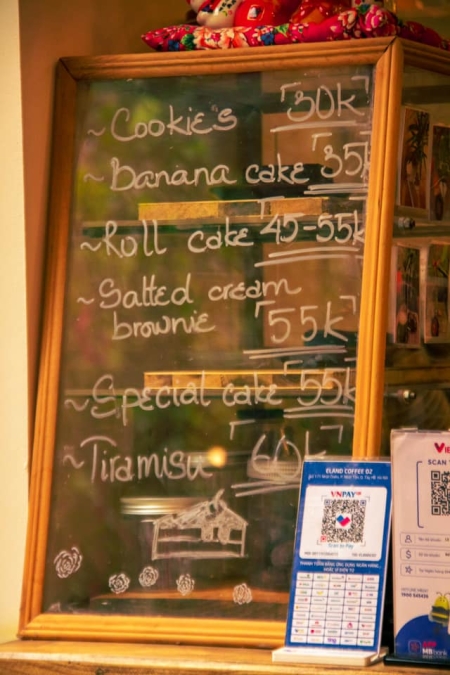 ~Cookie's 30k
~Banana cake 35k
~Roll cake 45-55k
~Salted cream
brownie 55k
~Special cake 55k
~Tiramisu 60k
ELAND COFFEE 02
VNPAY
Scan to Pay
SCAN
HOTLINE
MBbank